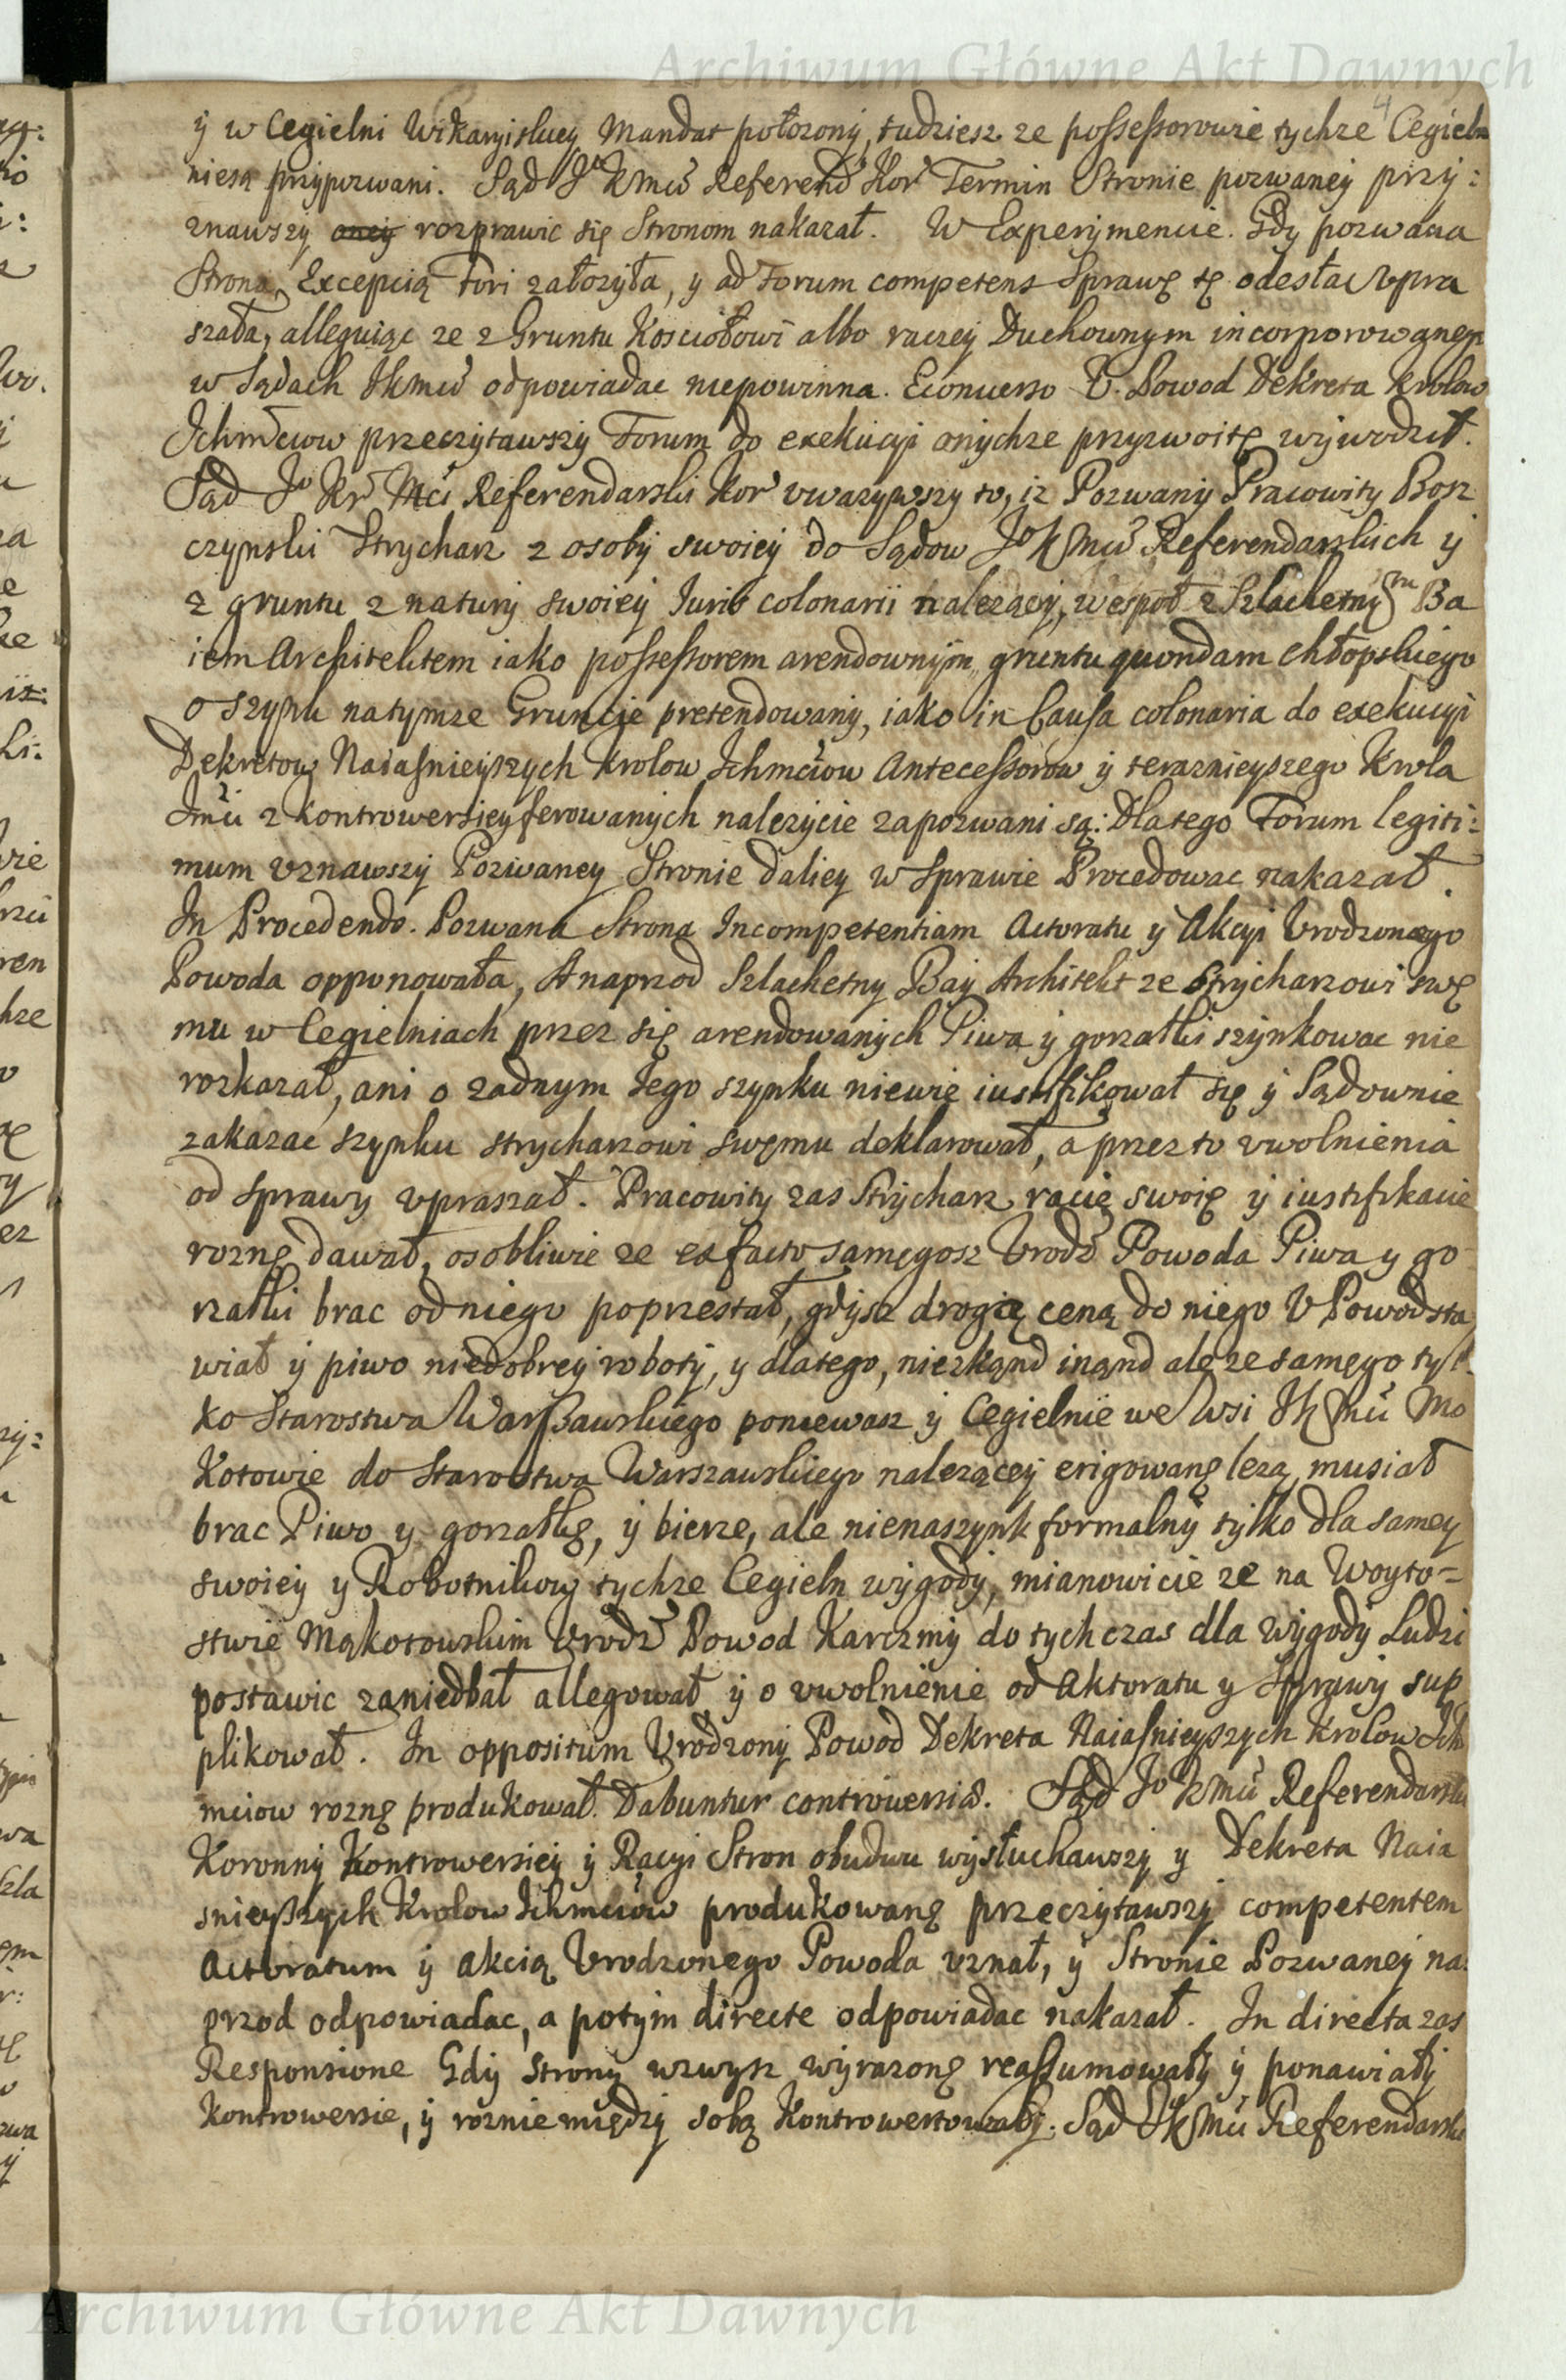 Archiwum Główne Akt Dawnych
4
ÿ w Cegielni Wikaryiskiey Mandat położony, tudziesz ze possessorowie tychze Cegieln
niesą przypozwani. Sąd Jo KMci Referend Kor Termin Stronie pozwaney przy:
znawszy oney rozprawic się Stronom nakazał. W Experymencie. Gdy pozwana
Strona, Excepcią Fori załozyła, y ad Forum competens Sprawę tę odesłac vpra
szała, alleguiąc ze z Gruntu Kosciołowi albo raczey Duchownym incorporowanego
w Sądach Jkmci odpowiadac niepowinna. Econuerso V. Powod Dekreta Krolow
Ichmciow przeczytawszy Forum do exekucyi onychze przyzwoitę wywodził.
Sąd Jo Kr Mci Referendarski Kor vwazywszy to, iz Pozwany Pracowity Bosz
czynski Strycharz z osoby swoiey do Sądow Jo KMci Referendarskich y
z gruntu z natury swoiey Iuris colonarii nalezący, wespoł z Szlachetnym Ba
iem Architektem iako possessorem arendownym gruntu quondam chłopskiego
o szynk natymze Gruncie pretendowany, iako in Causa colonaria do exekucyi
Dekretow Naiasnieyszych Krolow Ichmciow Antecessorow y teraznieyszego Krola
Jmci z kontrowersiey ferowanych nalezycie zapozwani są: Dlatego Forum legiti:
mum vznawszy Pozwaney Stronie daliey w Sprawie Procedowac nakazał.
In Procedendo. Pozwana Strona Incompetentiam Actoratu y Akcyi Vrodzonego
Powoda opponowała, A naprzod Szlachetny Bay Architekt ze Strycharzowi swę
mu w Cegielniach przez się arendowanych Piwa y gorzałki szynkowac nie
rozkazał, ani o zadnym Iego szynku niewie iustifikował się y Sądownie
zakazac szynku strycharzowi swęmu deklarował, a przez to vwolnienia
od sprawy vpraszał. Pracowity zas Strycharz racię swoię y iustifikacie
roznę dawał, osobliwie ze ex facto samęgosz Vrodz Powoda Piwa y go
rzałki brac odniego poprzestał, gdysz drogią ceną do niego V Powod sta
wiał y piwo niedobrey roboty, y dlatego, niezkąnd inąnd ale ze samęgo tyl
ko Starostwa Warszawskiego poniewasz y Cegielnie we Wsi JKMci Mo
kotowie do Starostwa Warszawskiego nalezącey erigowanę lezą, musiał
brac Piwo y gorzałkę, y bierze, ale nienaszynk formalny tylko dla samey
swoiey y Robotnikow tychze Cegieln wygody, mianowicie ze na Woyto=
stwie Mąkotowskim Vrodz Powod Karczmy do tych czas dla wygody Ludzi
postawic zaniedbał allegował y o vwolnienie od Aktoratu y Sprawy sup
plikował. In oppositum Vrodzony Powod Dekreta Naiasnieyszych Krolow Ich
mciow roznę produkował. Dabuntur controuersia. Sąd Jo KMci Referendarski
Koronny Kontrowersiey y Racyi Stron obudwu wysłuchawszy y Dekreta Naia
snieyszych Krolow Ichmciow produkowanę przeczytawszy competentem
Actoratum y akcią Vrodzonego Powoda vznał, y Stronie Pozwaney na:
przod odpowiadac, a potym directe odpowiadac nakazał. In directa zas
Responsione Gdy Strony wzwysz wyrazonę reassumowały y ponawiały
Kontrowersie, y roznie między sobą Kontrowertowały. Sąd JKMci Referendarski
Archiwum Główne Akt Dawnych